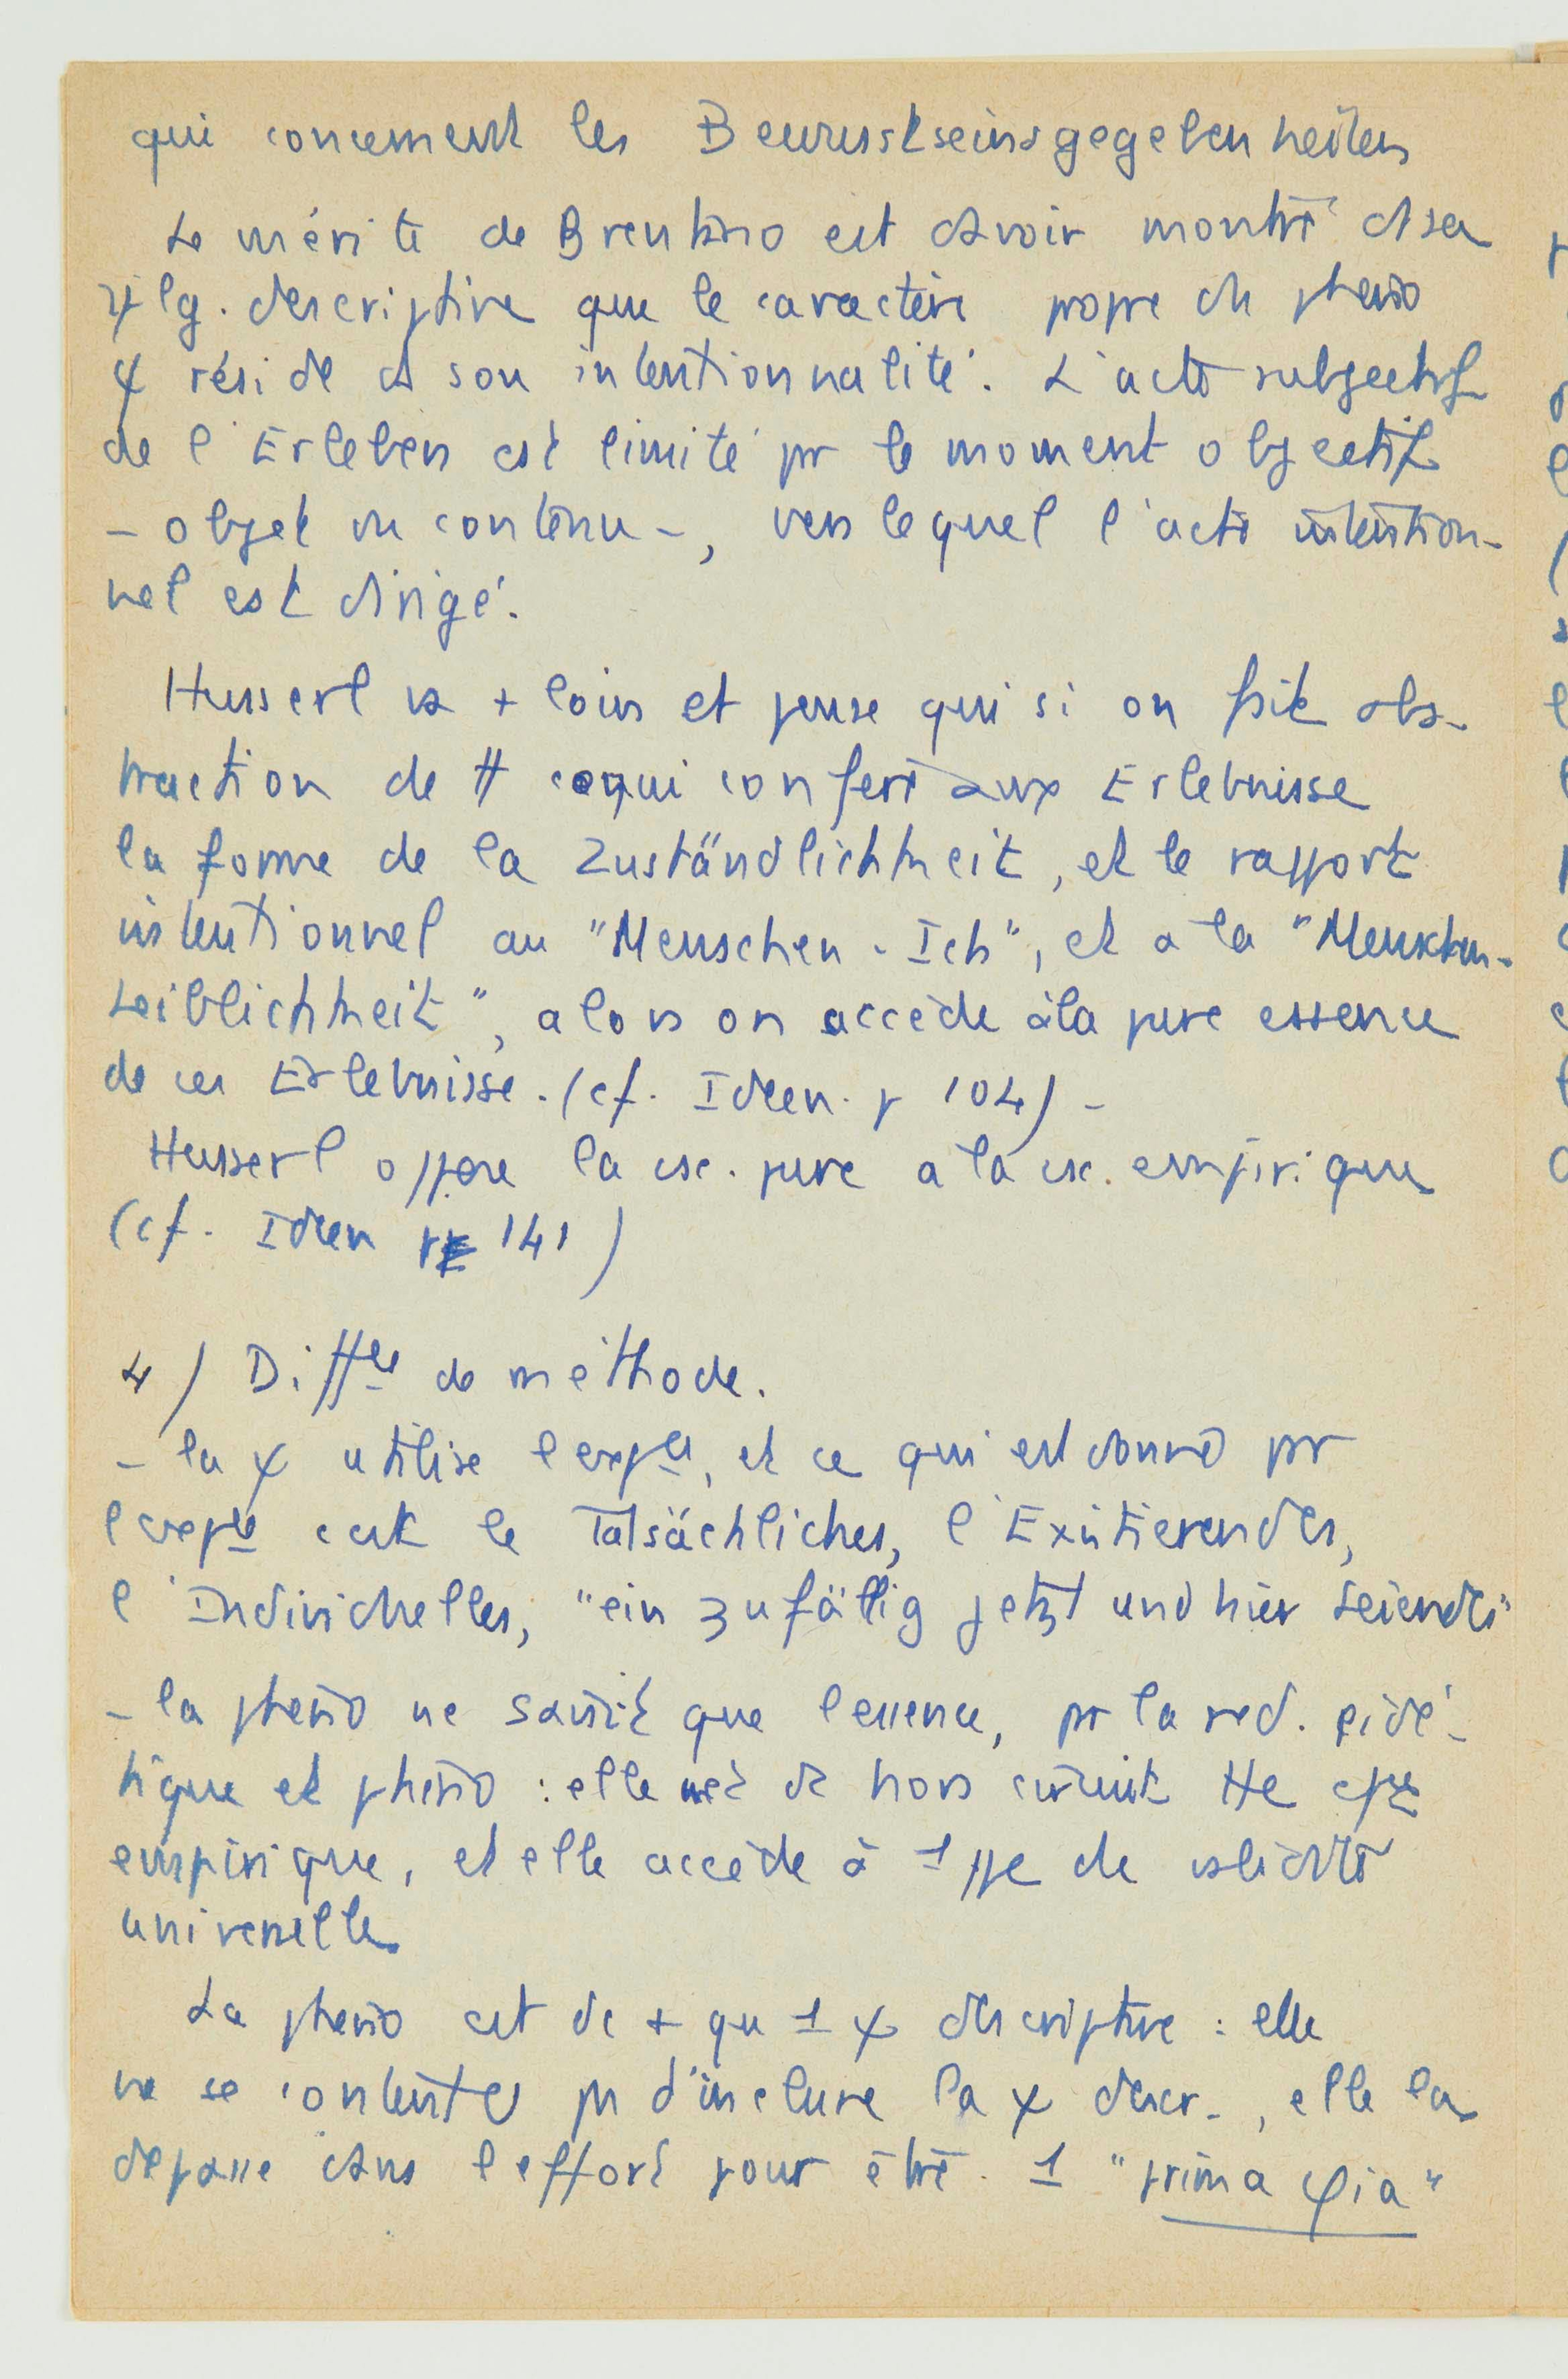 qui concernent les Bewusstseinsgegebenheiten
Le mérite de Brentano est d'avoir montré ds sa
ψlg. descriptive que le caractère propre du pheno
ψ réside ds son intentionnalité. L'acte subjectif
de l'Erleben est limité pr le moment objectif
- objet ou contenu -, vers lequel l'acte intention-
nel est dirigé.
Husserl va + loin et pense que si on fait abs-
traction de tt ce qui confère aux Erlebnisse
la forme de la Zuständlichkeit, et le rapport
intentionnel au "Menschen-Ich", et a la "Menschen-
Leiblichkeit", alors on accède à la pure essence
de ces Erlebnisse. (cf. Ideen. p 104) -
Husserl oppose la csc. pure a la csc. empirique
(cf. Ideen p 141)
4) Diffce de méthode.
- la ψ utilise l'expce, et ce qui est donné pr
l'expce c'est le Tatsächliches, l'Existierendes,
l'Individuelles, "ein zufällig jetzt und hier Seiendes"
- la pheno ne saisit que l'essence, pr la red. eidé-
tique et phéno : elle met dc hors circuit tte expce
empirique, et elle accède à 1 type de validité
universelle
La pheno est dc + qu 1 ψ descriptive : elle
ne se contente ps d'inclure la ψ descr., elle la
depasse dans l'effort pour être 1 "prima φia"